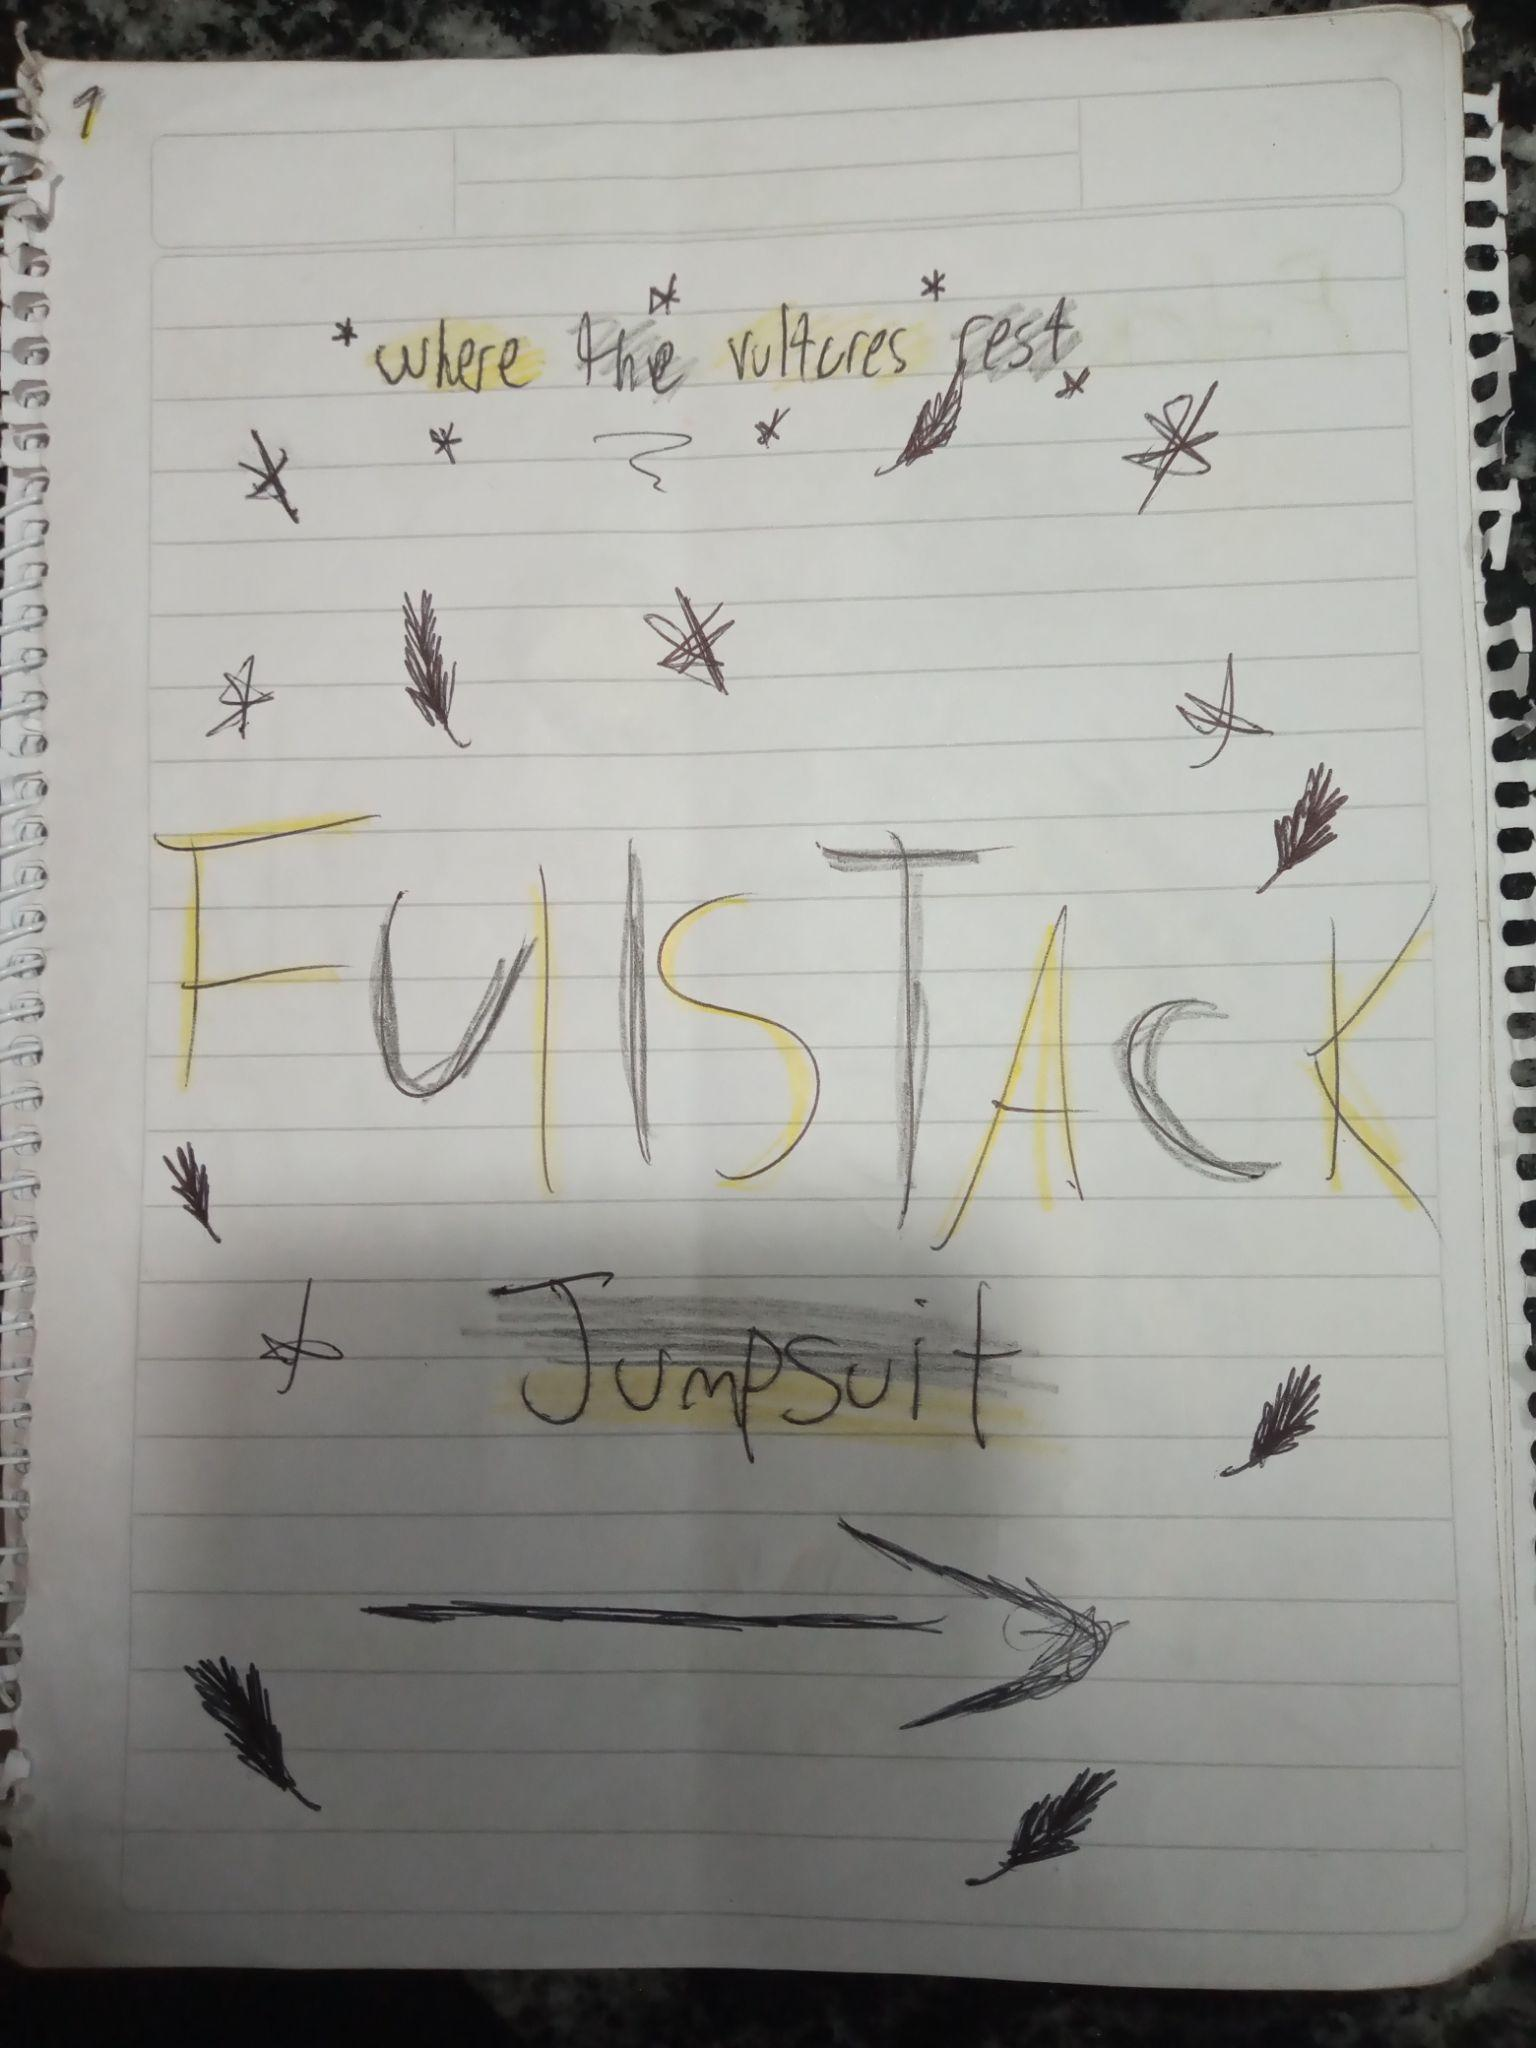 1
where the vultures rest
FUllSTACK
Jumpsuit